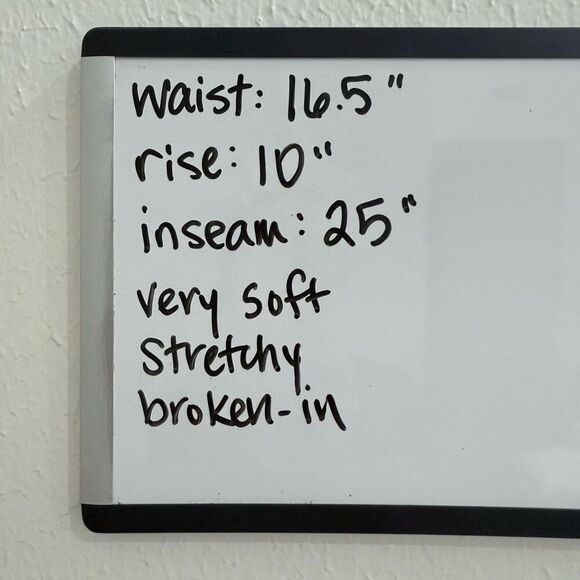 waist: 16.5"
rise: 10"
inseam: 25"
very soft
stretchy
broken-in